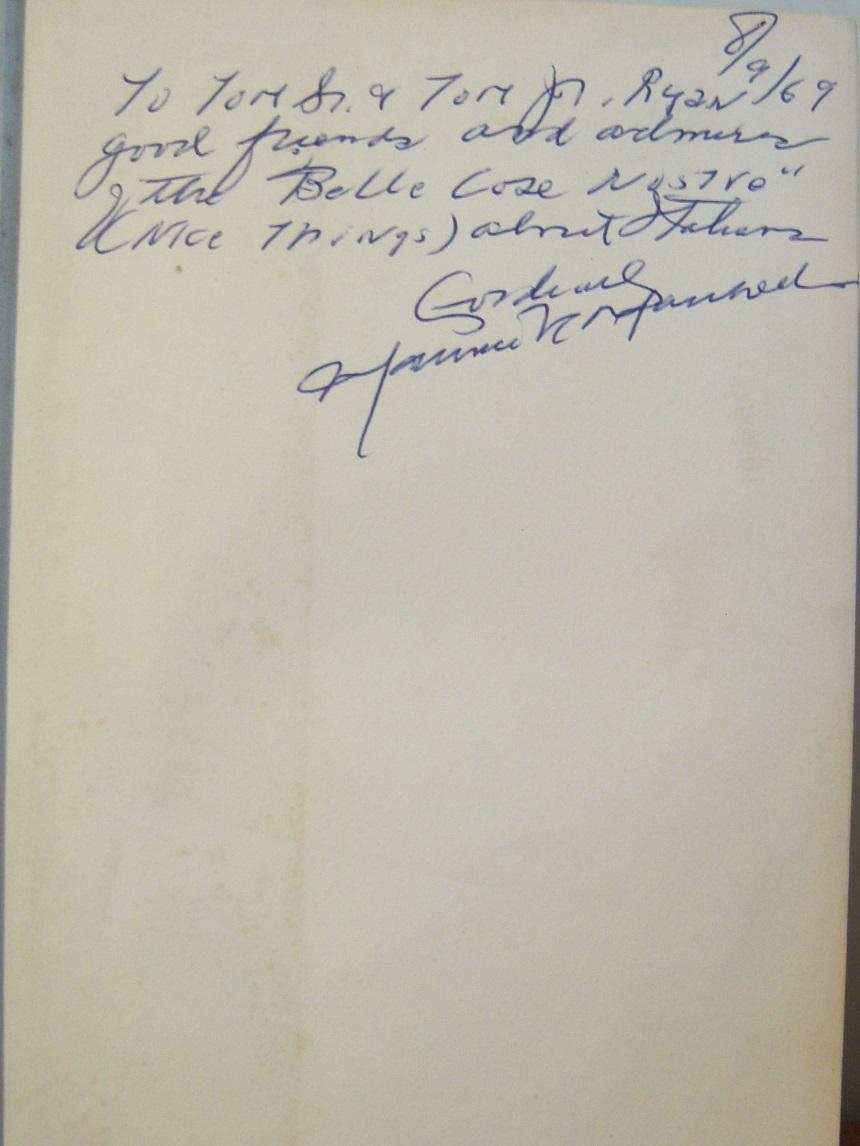 8/9/69
To Tom Sr. & Tom Jr. Ryan
good friends and admirers
of the Belle Cose Nostre"
(Nice Things) about Italians
Cordially